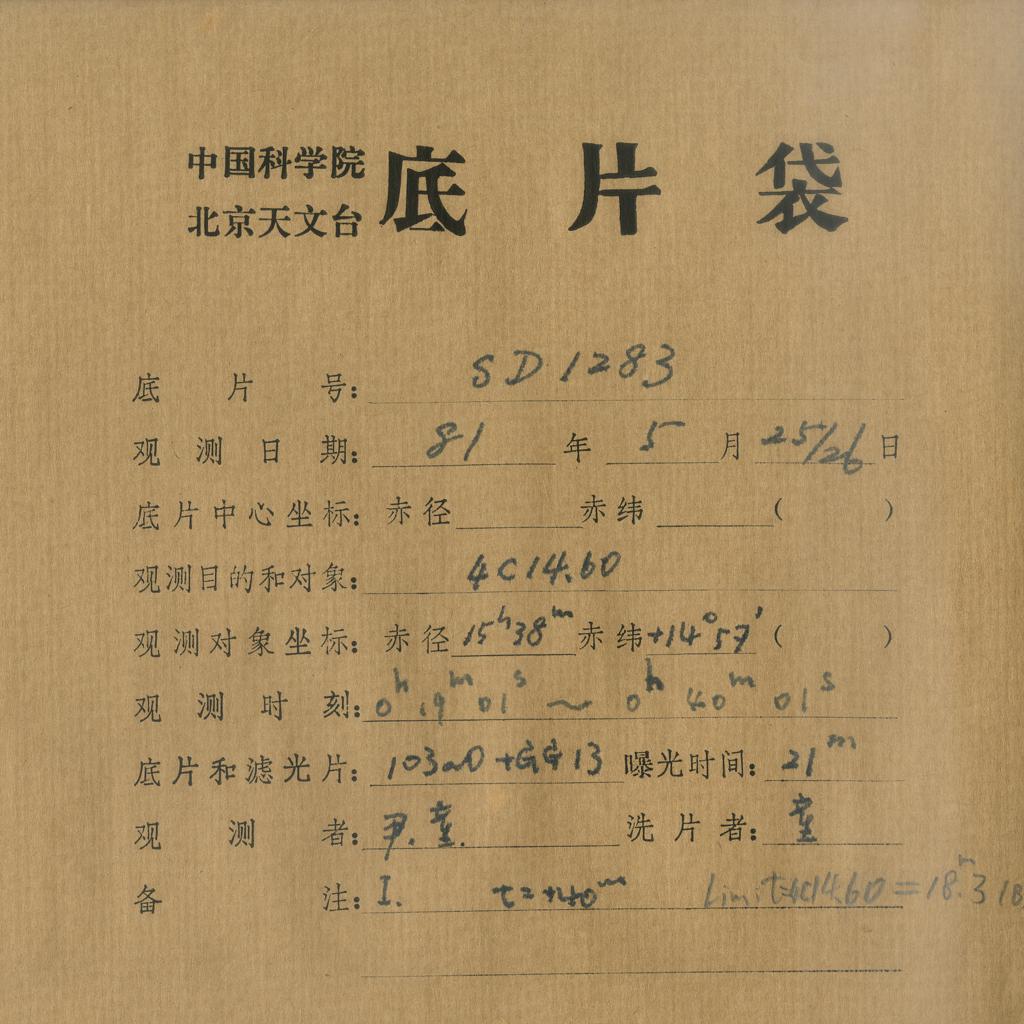 中国科学院
北京天文台
底片袋
底片号: SD1283
观测日期: 81 年 5 月 25/26 日
底片中心坐标: 赤径 赤纬 ( )
观测目的和对象: 4C14.60
观测对象坐标: 赤径 15ʰ38ᵐ 赤纬 +14°57′ ( )
观测时刻: 0ʰ 19ᵐ 01ˢ ~ 0ʰ 40ᵐ 01ˢ
底片和滤光片: 103aO+GG13 曝光时间: 21ᵐ
观测者: 尹.童. 洗片者: 童
备注: I. t=+40ᵐ Limit 4C14.60=18ᵐ.3